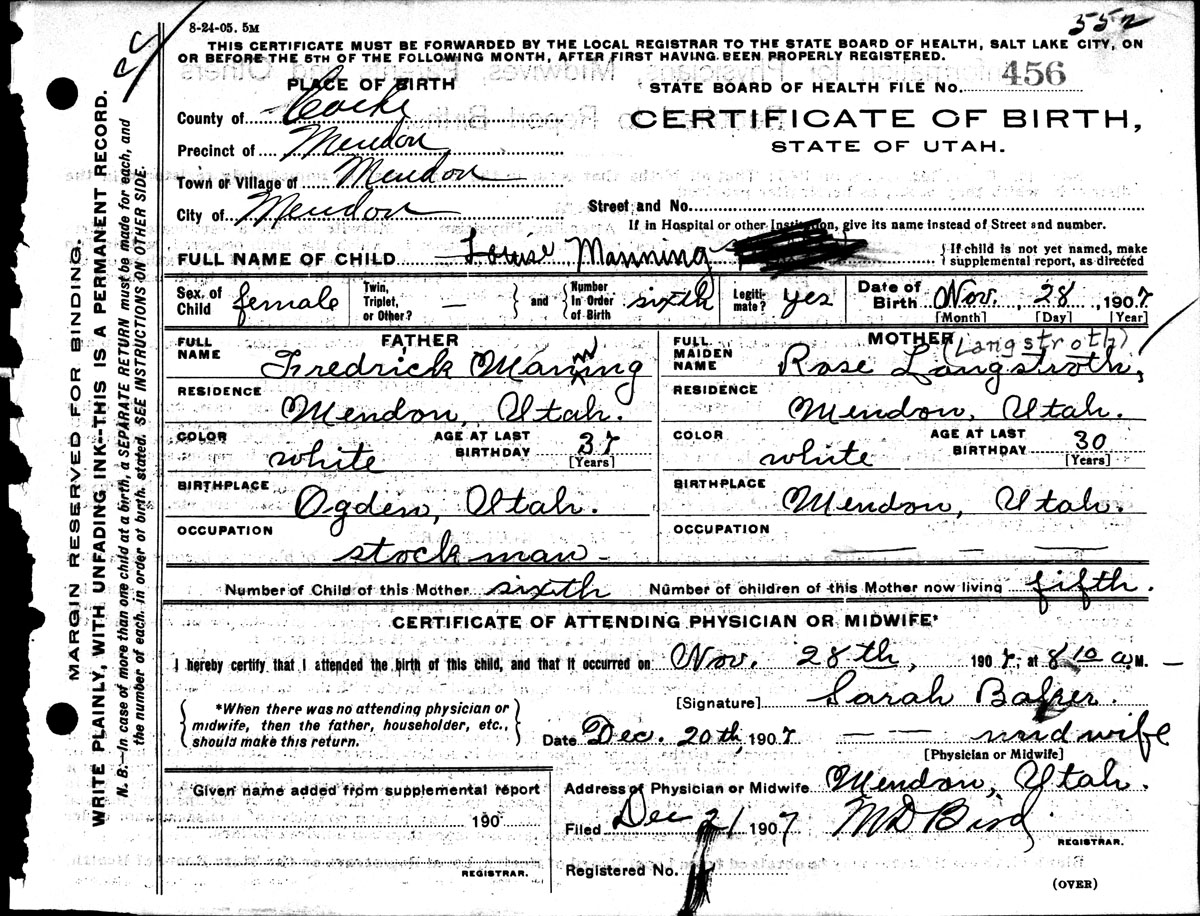 8-24-05. 5M
552
THIS CERTIFICATE MUST BE FORWARDED BY THE LOCAL REGISTRAR TO THE STATE BOARD OF HEALTH, SALT LAKE CITY, ON
OR BEFORE THE 5TH OF THE FOLLOWING MONTH, AFTER FIRST HAVING BEEN PROPERLY REGISTERED.
PLACE OF BIRTH
STATE BOARD OF HEALTH FILE No. 456
County of Cache
CERTIFICATE OF BIRTH,
STATE OF UTAH.
Precinct of Mendon
Town or Village of Mendon
City of Mendon
Street and No.
If in Hospital or other Institution, give its name instead of Street and number.
FULL NAME OF CHILD Louise Manning
{ If child is not yet named, make
supplemental report, as directed
Sex of Child female
Twin, Triplet, or Other? — } and { Number In Order of Birth sixth
Legiti-mate? yes
Date of Birth Nov. 28, 1907
[Month] [Day] [Year]
FATHER
MOTHER (Langstroth)
FULL NAME Fredrick Manning
FULL MAIDEN NAME Rose Langstroth,
RESIDENCE Mendon, Utah.
RESIDENCE Mendon, Utah.
COLOR white AGE AT LAST BIRTHDAY 37 [Years]
COLOR white AGE AT LAST BIRTHDAY 30 [Years]
BIRTHPLACE Ogden, Utah.
BIRTHPLACE Mendon, Utah.
OCCUPATION stockman -
OCCUPATION — — —
Number of Child of this Mother sixth Number of children of this Mother now living fifth.
CERTIFICATE OF ATTENDING PHYSICIAN OR MIDWIFE*
I hereby certify that I attended the birth of this child, and that it occurred on Nov. 28th, 1907; at 8 10 a.M.
[Signature] Sarah Baker.
{ *When there was no attending physician or
midwife, then the father, householder, etc.,
should make this return. }
Date Dec. 20th, 1907 — — midwife
[Physician or Midwife]
Address of Physician or Midwife Mendon, Utah.
Given name added from supplemental report
190
REGISTRAR.
Filed Dec 21 1907 M D Bird
REGISTRAR.
Registered No.
(OVER)
MARGIN RESERVED FOR BINDING.
WRITE PLAINLY, WITH UNFADING INK--THIS IS A PERMANENT RECORD.
N. B.—In case of more than one child at a birth, a SEPARATE RETURN must be made for each, and
the number of each, in order of birth, stated. SEE INSTRUCTIONS ON OTHER SIDE.